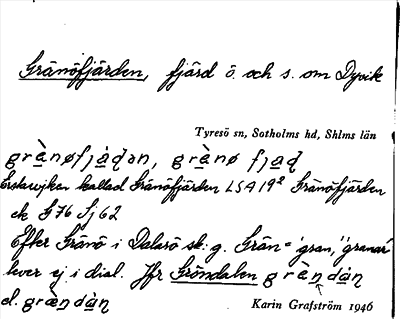 Gränöfjärden, fjärd ö. och s. om Dyvik
Tyresö sn, Sotholms hd, Shlms län
grènøfjạ̀ḍan, grènø fjạḍ
Erstaviken kallad Gränöfjärden LSA 19² Gränöfjärden
ek G 76 Sj 62
Efter Gränö i Dalarö sk:g. Grän= 'gran', 'granar'
lever ej i dial. Jfr Gröndalen grèṇdàṇ
el. grændàn
Karin Grafström 1946